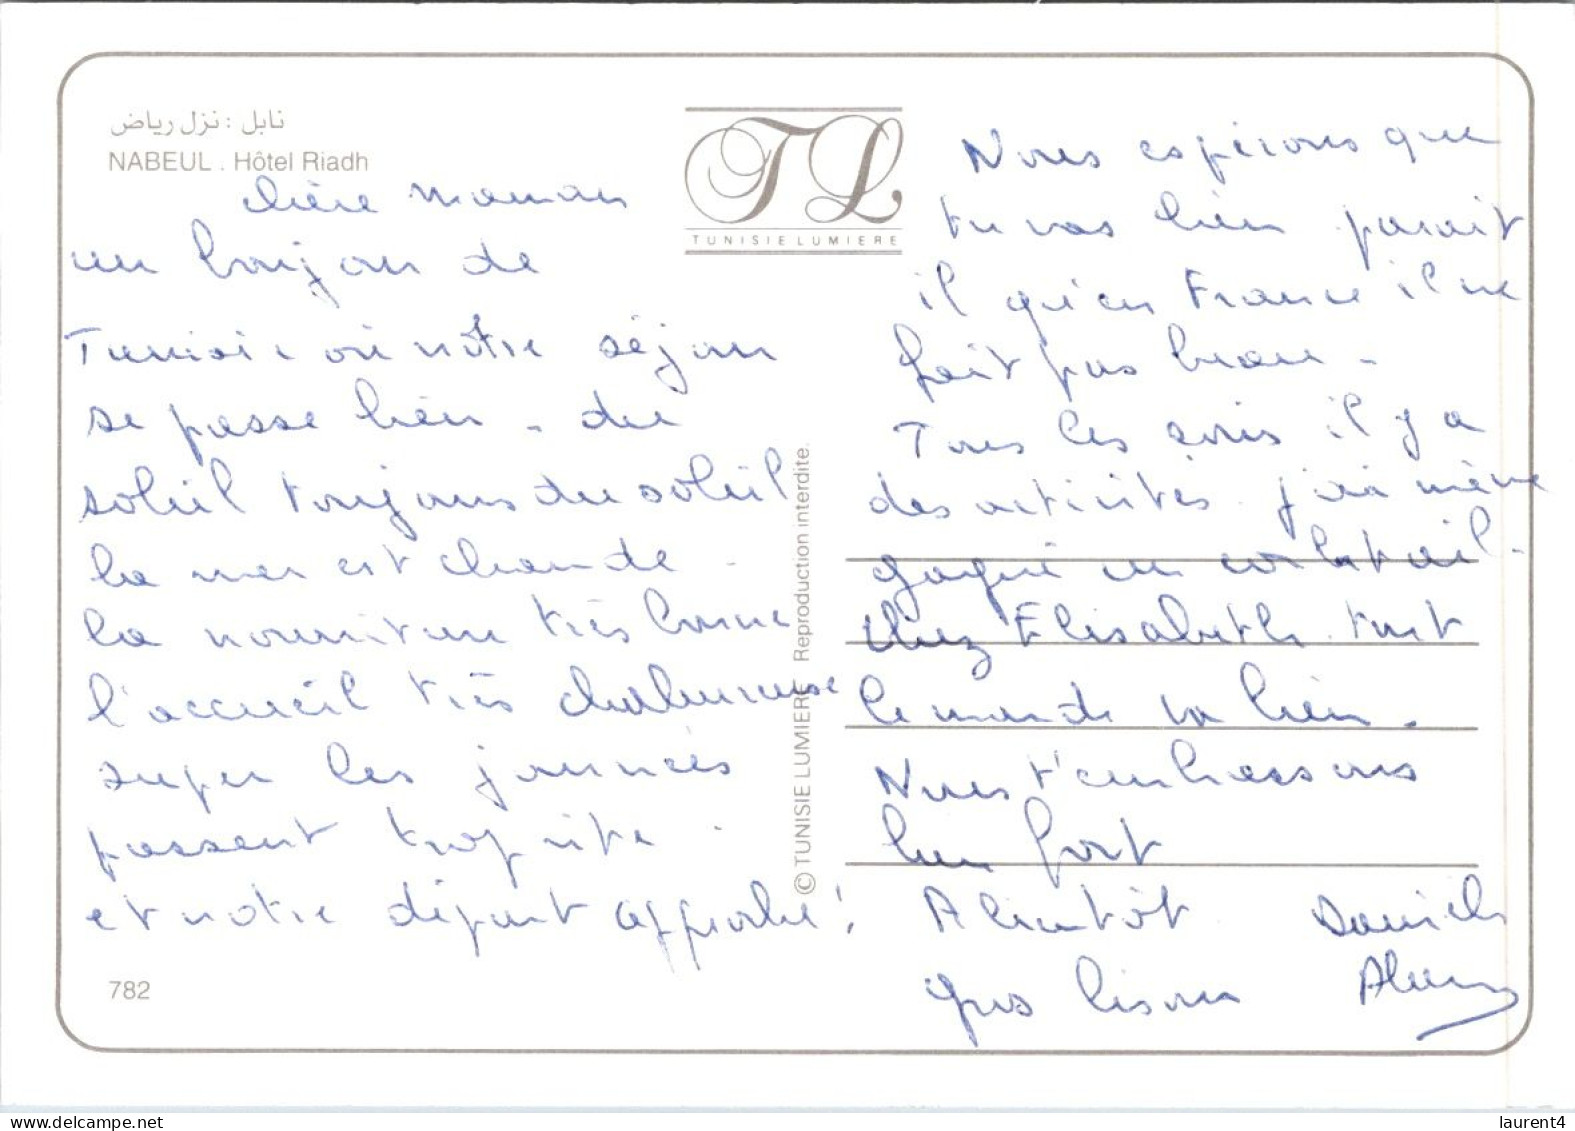 نابل : نزل رياض
NABEUL . Hôtel Riadh
TL
TUNISIE LUMIERE
chère maman
un bonjour de
Tunisie où nôtre séjour
se passe bien - du
soleil toujours du soleil
la mer est chaude -
la nourriture très bonne
l'accueil très chaleureuse
super les journées
passent trop vite .
et notre départ approche !
782
© TUNISIE LUMIERE Reproduction interdite.
Nous espérons que
tu vas bien parait
il qu'en France il ne
fait pas beau -
Tous les soirs il y a
des activités . j'ai même
gagné un cocktail -
chez Elisabeth tout
le monde va bien -
Nous t'embrassons
bien fort
A bientôt
gros bisous
Alain
laurent4